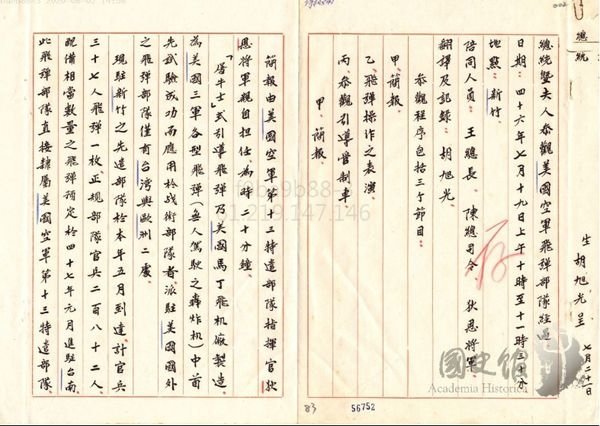 生 胡旭光 呈 七月二十一日
總統暨夫人參觀美國空軍飛彈部隊經過
日期：四十六年七月十九日上午十時至十一時三十分
地點：新竹
陪同人員：王總長 陳總司令 狄恩將軍
翻譯及記錄：胡旭光
參觀程序包括三個節目：
甲、簡報
乙、飛彈操作之表演
丙、參觀引導管制車
甲、簡報
簡報由美國空軍第十三特遣部隊指揮官狄
恩將軍親自担任、為時二十分鐘。
「屠牛士」式引導飛彈乃美國馬丁飛机廠製造、
為美國三軍各型飛彈（無人駕駛之轟炸机）中首
先試驗成功而應用於战術部隊者派駐美國國外
之飛彈部隊僅有台灣與歐洲二處。
現駐新竹之先遣部隊於本年五月到達計官兵
三十七人飛彈一枚、正規部隊官兵二百八十二人、
配備相當數量之飛彈預定於四十七年元月進駐台南
此飛彈部隊直接隸屬美國空軍第十三特遣部隊、
83
56752
國史館
Academia Historica